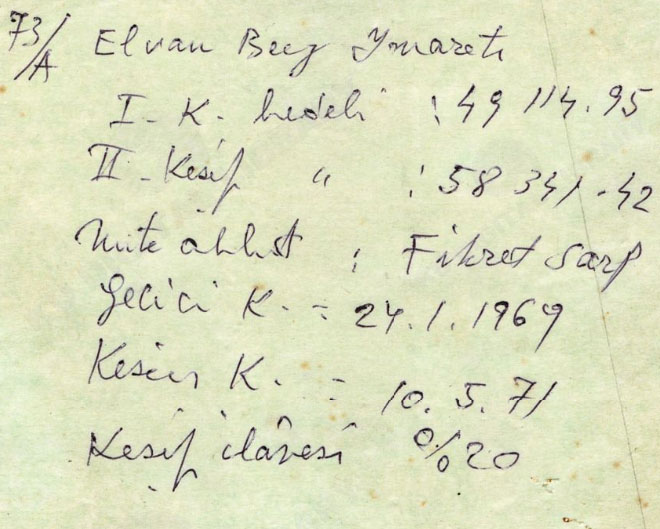 73/A Elvan Bey Ymareti
I - K. bedeli : 49 114.95
II - Kesif " : 58 341.42
Müteahhit : Fikret Sarp
Gecici K. = 24.1.1969
Kesin K. = 10.5.71
Kesif ilâvesi % 20